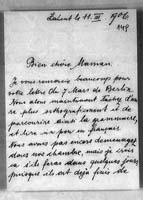 le 11. III 1906
Bien chère Maman.
Je vous remercie beaucoup pour
votre lettre du 7 Mars de Berlin.
Nous avons maintenant
plus orthographiement et de
parcourir ainsi la grammaire,
et lire un peu en français
Nous avons pas encore déménagés
dans nos chambres, mais je crois
que ça se fera dans quelques jours,
puisque ils ont déjà finis de